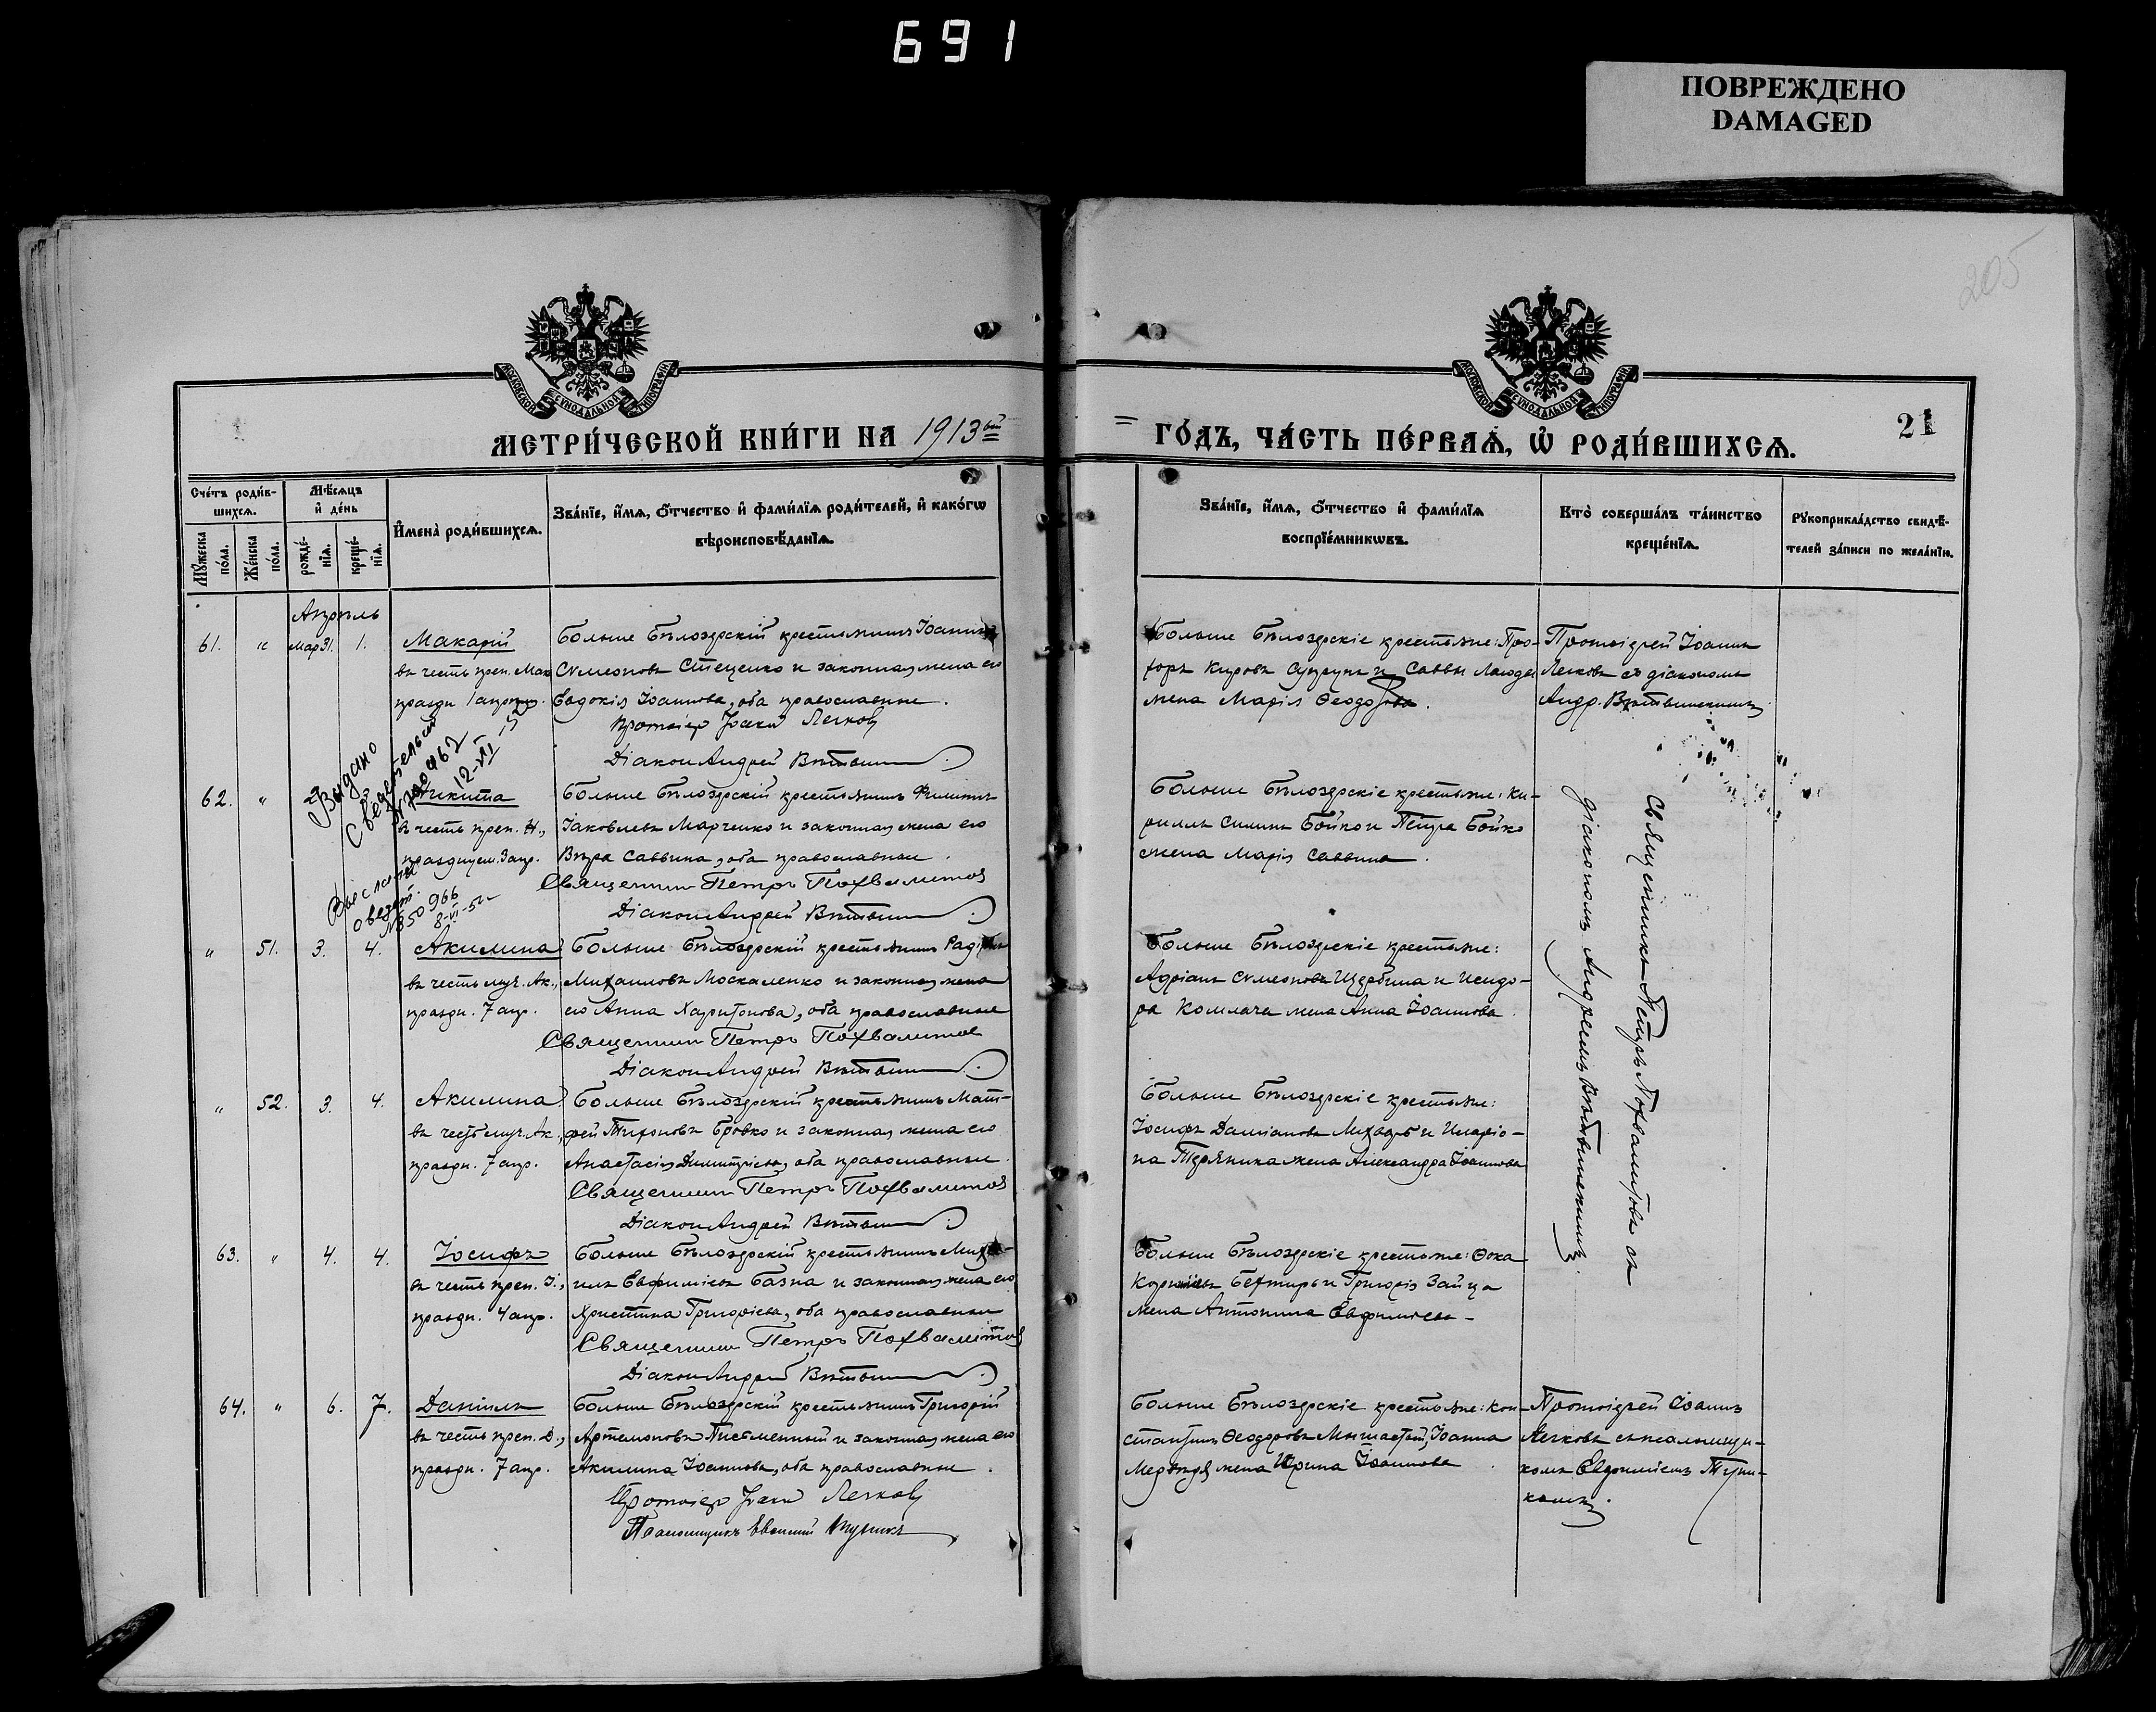 691
ПОВРЕЖДЕНО
DAMAGED
205
МОСКОВСКОЙ СѴНОДАЛЬНОЙ ТИПОГРАФІИ
МОСКОВСКОЙ СѴНОДАЛЬНОЙ ТИПОГРАФІИ
МЕТРИ́ЧЕСКОЙ КНИ́ГИ НА 1913ый
ГО́ДЪ, ЧА́СТЬ ПЕ́РВАѦ, Ѡ РОДИ́ВШИХСѦ.
21
Сче́тъ роди́в-
шихсѧ.
Мꙋ́жеска по́ла.
Же́нска по́ла.
Мѣ́сѧцъ
и҆ де́нь
рожде́-
нїѧ.
креще́-
нїѧ.
И҆мена̀ роди́вшихсѧ.
Зва́нїе, и҆́мѧ, ѻ҆́тчество и҆ фами́лїѧ роди́телей, и҆ како́гѡ
вѣроисповѣ́данїѧ.
Зва́нїе, и҆́мѧ, ѻ҆́тчество и҆ фами́лїѧ
воспрїе́мникѡвъ.
Кто̀ соверша́лъ та́инство
креще́нїѧ.
Рꙋкоприкла́дство свидѣ́-
телей за́писи по жела́нїю.
Апрѣль
61. " Мар 31. 1. Макарій
въ честь преп. Мак
праздн 1 апрѣл.
Больше Бѣлозерскій крестьянинъ Іоаннъ
Сѵмеоновъ Стеценко и законная жена его
Евдокія Іоаннова, оба православные.
Протоіер Іоанн Легков
Діакон Андрей
Больше Бѣлозерскіе крестьяне: Про-
хоръ Кировъ Супрунъ и Саввы Лагоды
жена Марія Ѳеодо
Протоіерей Іоаннъ
Легковъ съ діакономъ
Андр.
Выдано
Свидетельст
12-VI-
62. " Никита
въ честь преп. Н.,
празднуем. 3 апр.
Больше Бѣлозерскій крестьянинъ Филиппъ
Іаковлевъ Марченко и законная жена его
Вѣра Саввина, оба православные.
Священник Петр Похвалитов
Діакон Андрей
Больше Бѣлозерскіе крестьяне: Ки-
риллъ Силинъ Бойко и Петра Бойко
жена Марія Саввина.
Священникъ Петръ Похвалитовъ съ
діакономъ Андреемъ
№ 850966
8-VI-51
" 51. 3. 4. Акилина
въ честь муч. Ак.,
праздн. 7 апр.
Больше Бѣлозерскій крестьянинъ
Михаиловъ Москаленко и законная жена
его Анна Харитонова, оба православные
Священник Петр Похвалитов
Діакон Андрей
Больше Бѣлозерскіе крестьяне:
Адріанъ Сѵмеоновъ Щербина и Исидо-
ра жена Анна Іоаннова.
" 52. 3. 4. Акилина
въ честь муч. Ак.,
праздн. 7 апр.
Больше Бѣлозерскій крестьянинъ Мат-
фей Тихоновъ Бровко и законная жена его
Анастасія Димитріева, оба православные.
Священник Петр Похвалитов
Діакон Андрей
Больше Бѣлозерскіе крестьяне:
Іосифъ Даміановъ и Иларіо-
на жена Александра Іоаннова
63. " 4. 4. Іосифъ
въ честь преп. І.,
праздн. 4 апр.
Больше Бѣлозерскій крестьянинъ Миха-
илъ Евфиміевъ Базна и законная жена его
Христина Григоріева, оба православные
Священник Петр Похвалитов
Діакон Андрей
Больше Бѣлозерскіе крестьяне: Ѳока
и Григорія Зайца
жена Антонина Евфиміева -
64. " 6. 7. Даніилъ
въ честь преп. Д.,
праздн. 7 апр.
Больше Бѣлозерскій крестьянинъ Григорій
Артемоновъ Письменный и законная жена его
Акилина Іоаннова, оба православные.
Протоіер Іоанн Легков
Псаломщикъ
Больше Бѣлозерскіе крестьяне: Кон-
стантинъ Ѳеодоровъ Іоанна
Медвѣдя жена Ирина Іоаннова.
Протоіерей Іоаннъ
Легковъ съ псаломщи-
комъ